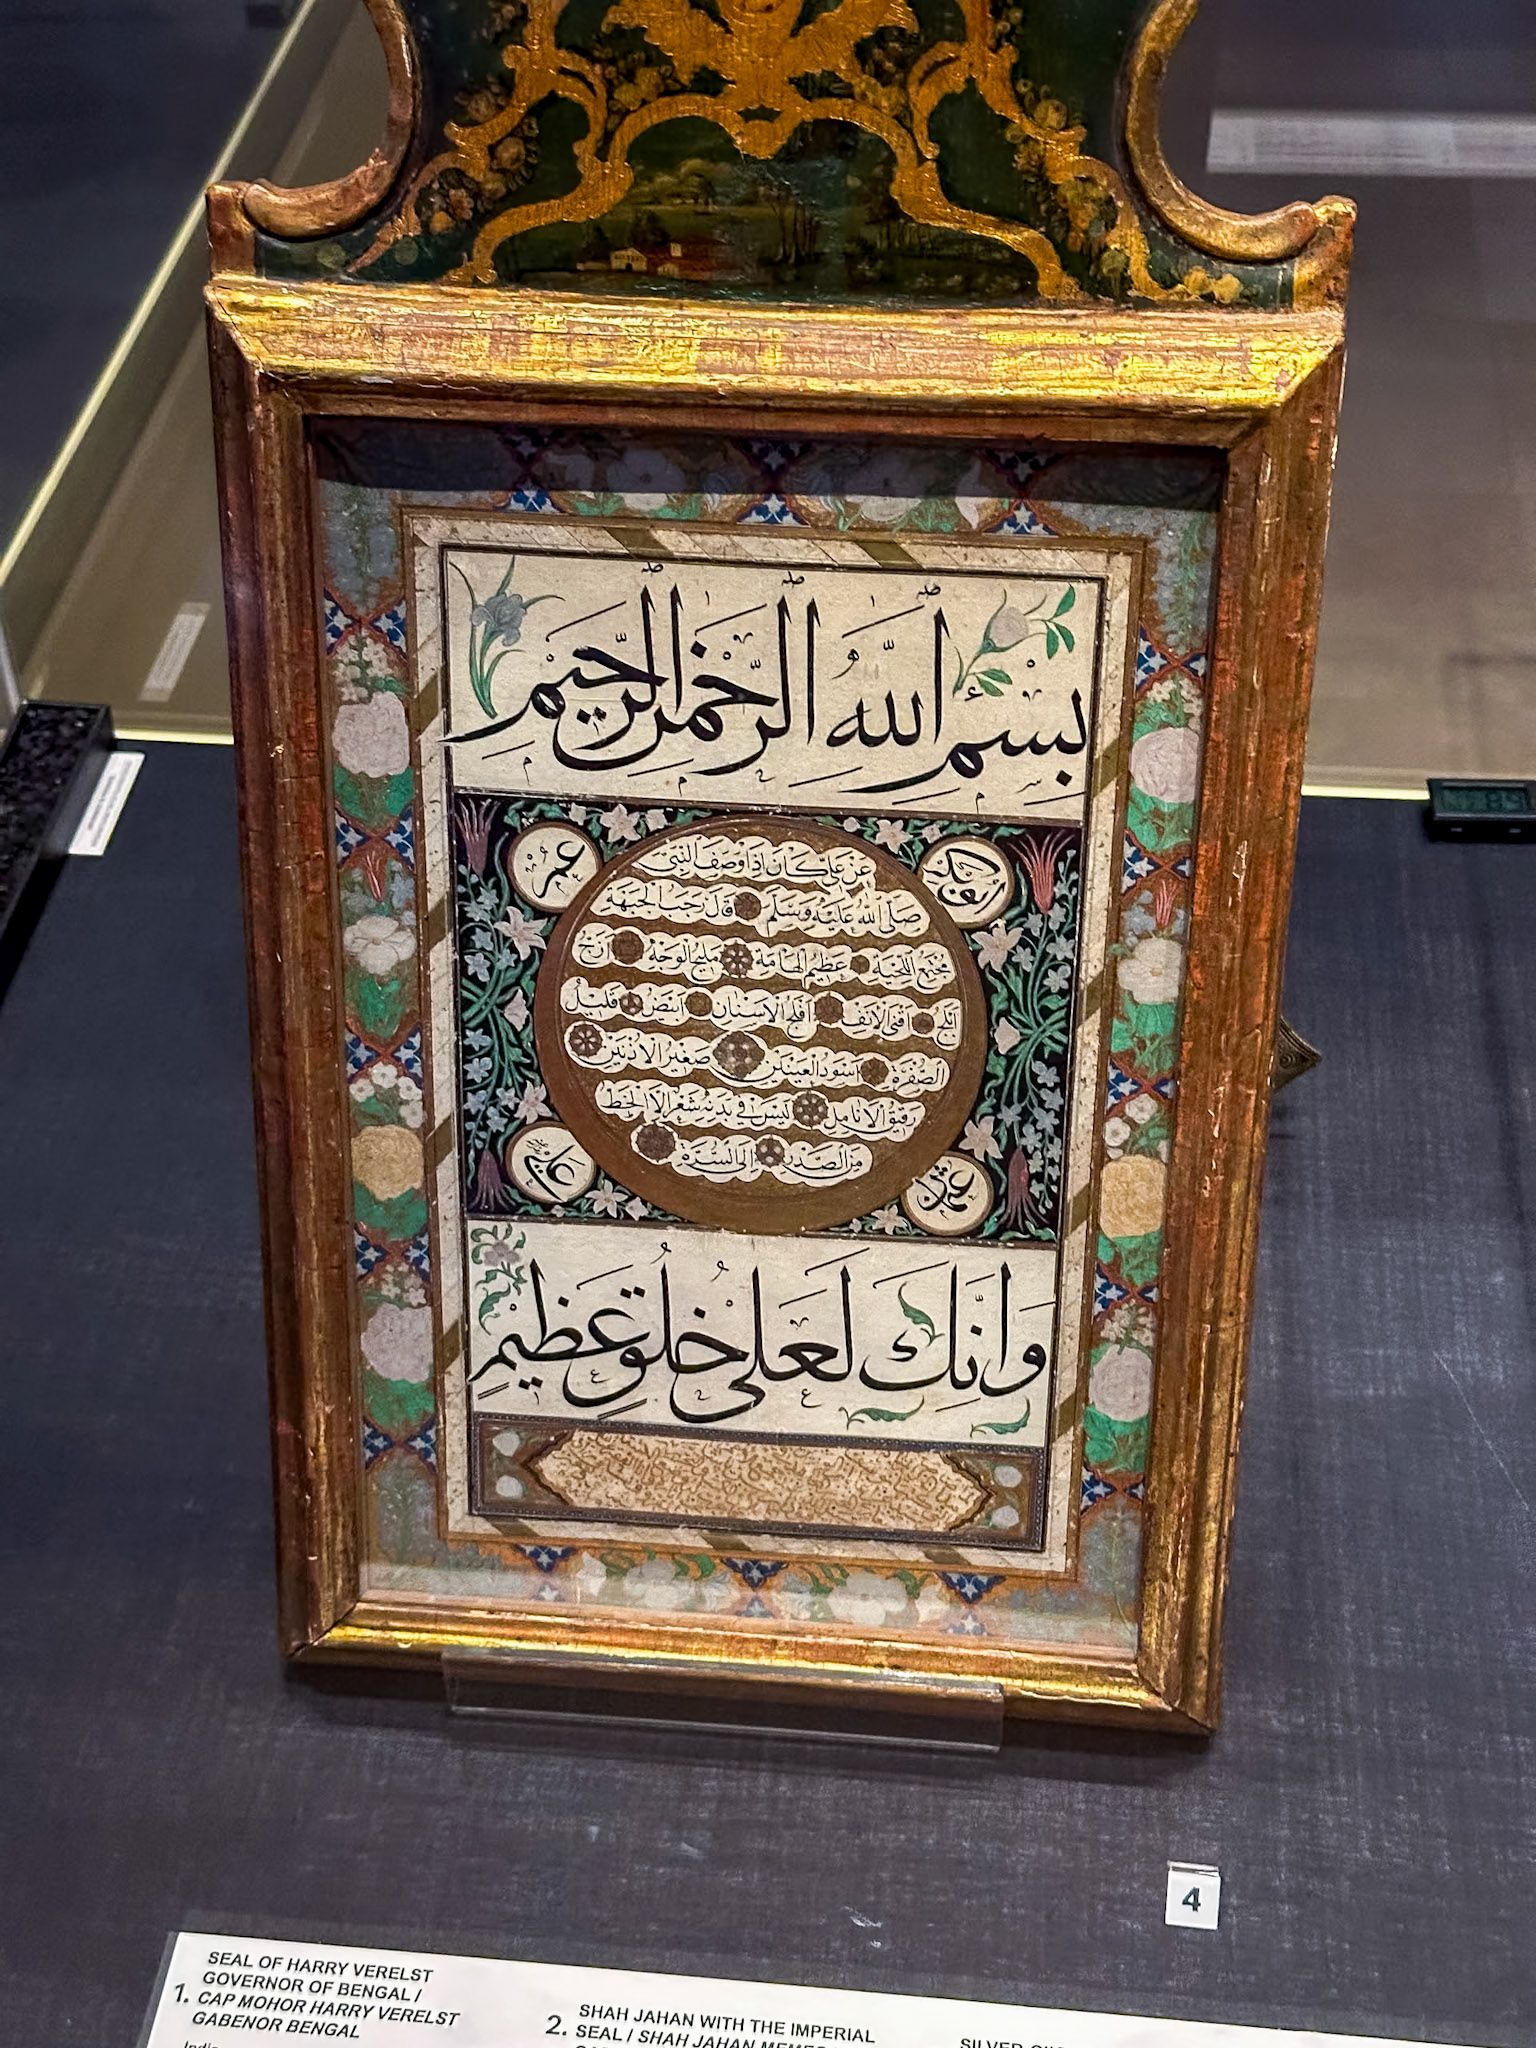 بِسْمِ اللهِ الرَّحْمٰنِ الرَّحِيمِ
ابو بكر
عُمَر
عَنْ عَلِيٍّ كَانَ اِذَا وَصَفَ النَّبِيَّ
صَلَّى اللهُ عَلَيْهِ وَسَلَّمَ قَالَ رَحْبُ الْجَبْهَةِ
مُجْتَمِعُ اللِّحْيَةِ عَظِيمُ الْهَامَةِ مَلِيحُ الْوَجْهِ اَزَجُّ
اَبْلَجُ اَقْنَى الْاَنْفِ اَفْلَجُ الْاَسْنَانِ اَبْيَضُ قَلِيلُ
الصُّفْرَةِ اَسْوَدُ الْعَيْنَيْنِ صَغِيرُ الْاُذْنَيْنِ
رَقِيقُ الْاَنَامِلِ لَيْسَ فِي بَدَنِهِ شَعْرٌ اِلَّا الْخَطُّ
مِنَ الصَّدْرِ اِلَى السُّرَّةِ
عثمن
علي
وَاِنَّكَ لَعَلٰى خُلُقٍ عَظِيمٍ
4
1. SEAL OF HARRY VERELST
GOVERNOR OF BENGAL /
CAP MOHOR HARRY VERELST
GABENOR BENGAL
2. SHAH JAHAN WITH THE IMPERIAL
SEAL / SHAH JAHAN